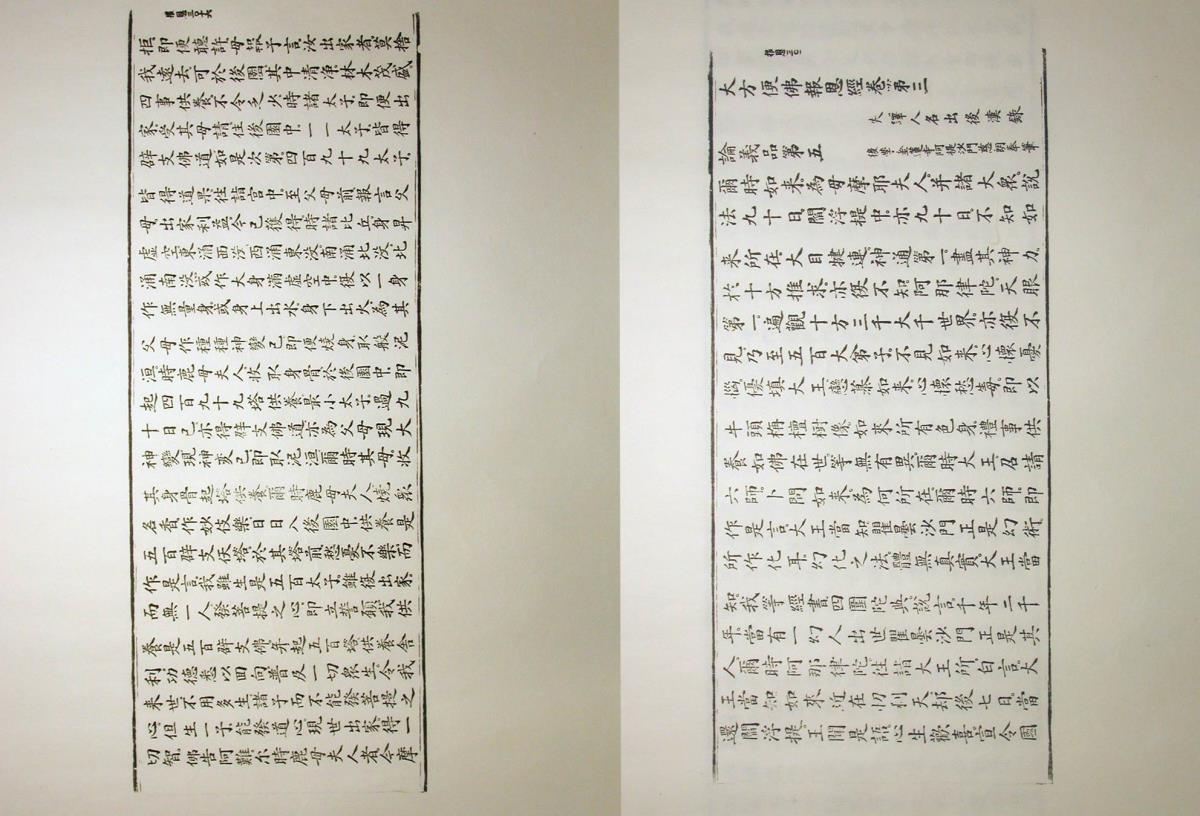 拒即便聽許母報子言汝出家者莫捨
我遠去可於後園其中清淨林木茂盛
四事供養不令乏少時諸太子即便出
家受其母請住後園中一一太子皆得
辟支佛道如是次第四百九十九太子
皆得道果往詣宮中至父母前報言父
母出家利益今已獲得時諸比丘身昇
虛空東涌西沒西涌東沒南涌北沒北
涌南沒或作大身滿虛空中復以一身
作無量身或身上出水身下出火為其
父母作種種神變已即便燒身取般泥
洹時鹿母夫人收取身骨於後園中即
起四百九十九塔供養最小太子過九
十日已亦得辟支佛道亦為父母現大
神變現神変已即取泥洹爾時其母收
其身骨起塔供養爾時鹿母夫人燒眾
名香作妙伎樂日日入後園中供養是
五百辟支佛塔於其塔前愁憂不樂而
作是言我雖生是五百太子雖復出家
而無一人發菩提之心即立誓願我供
養是五百辟支佛并起五百塔供養舍
利功德悉以回向普及一切眾生令我
来世不用多生諸子而不能發菩提之
心但生一子能發道心現世出家得一
切智佛告阿難尔時鹿母夫人者今摩
大方便佛報恩經卷第三
失譯人名出後漢錄
論義品第五
爾時如来為母摩耶夫人并諸大眾說
法九十日閻浮提中亦九十日不知如
来所在大目揵連神通第一盡其神力
於十方推求亦復不知阿那律陀天眼
第一遍觀十方三千大千世界亦復不
見乃至五百大弟子不見如来心懷憂
惱優填大王戀慕如来心懷愁毒即以
牛頭栴檀樹像如來所有色身禮事供
養如佛在世等無有異爾時大王召請
六師卜問如来為何所在爾時六師即
作是言大王當知瞿曇沙門正是幻術
所作化耳幻化之法體無真實大王當
知我等經書四圍陀典說言千年二千
年當有一幻人出世瞿曇沙門正是其
人爾時阿那律陀往詣大王所白言大
王當知如來近在忉利天却後七日當
還閻浮提王聞是語心生歡喜宣令國